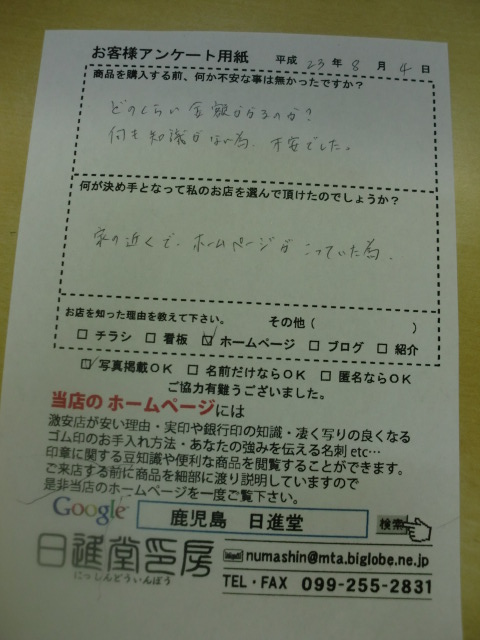 お客様アンケート用紙 平成 23 年 8 月 4 日
商品を購入する前、何か不安な事は無かったですか?
どのくらい金額かかるのか?
何も知識がない為、不安でした。
何が決め手となって私のお店を選んで頂けたのでしょうか?
家の近くで、ホームページがこっていた為、
お店を知った理由を教えて下さい。 その他( )
□ チラシ □ 看板 ☑ ホームページ □ ブログ □ 紹介
☑ 写真掲載OK □ 名前だけならOK □ 匿名ならOK
ご協力有難うございました。
当店の ホームページには
激安店が安い理由・実印や銀行印の知識・凄く写りの良くなる
ゴム印のお手入れ方法・あなたの強みを伝える名刺 etc…
印章に関する豆知識や便利な商品を閲覧することができます。
ご来店する前に商品を細部に渡り説明していますので
是非当店のホームページを一度ご覧下さい。
Google 鹿児島 日進堂 検索
日進堂印房
にっしんどういんぼう
numashin@mta.biglobe.ne.jp
TEL・FAX 099-255-2831